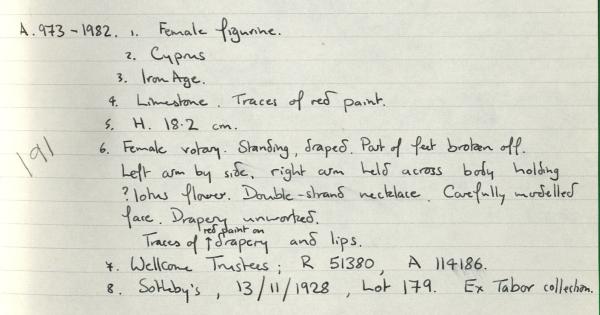 A.973-1982. 1. Female figurine.
2. Cyprus
3. Iron Age.
4. Limestone. Traces of red paint.
5. H. 18.2 cm.
6. Female votary. Standing, draped. Part of feet broken off.
Left arm by side, right arm held across body holding
? lotus flower. Double-strand necklace. Carefully modelled
face. Drapery unworked.
red paint on
Traces of ↑ drapery and lips.
7. Wellcome Trustees; R 51380, A 114186.
8. Sotheby's, 13/11/1928, Lot 179. Ex Tabor collection.
191